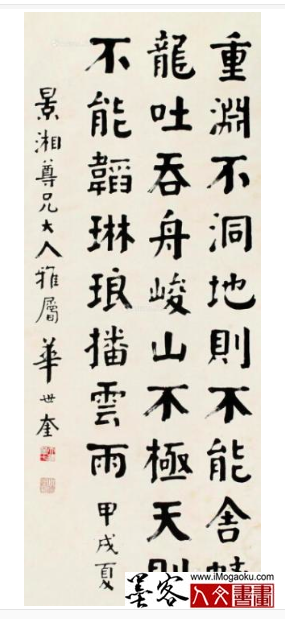 重淵不洞地則不能舍
龍吐吞舟峻山不極天則
不能韜琳琅播雲雨
甲戌夏
景湘尊兄大人雅屬
華世奎
墨客
www.iMogaoku.com
人文書畫